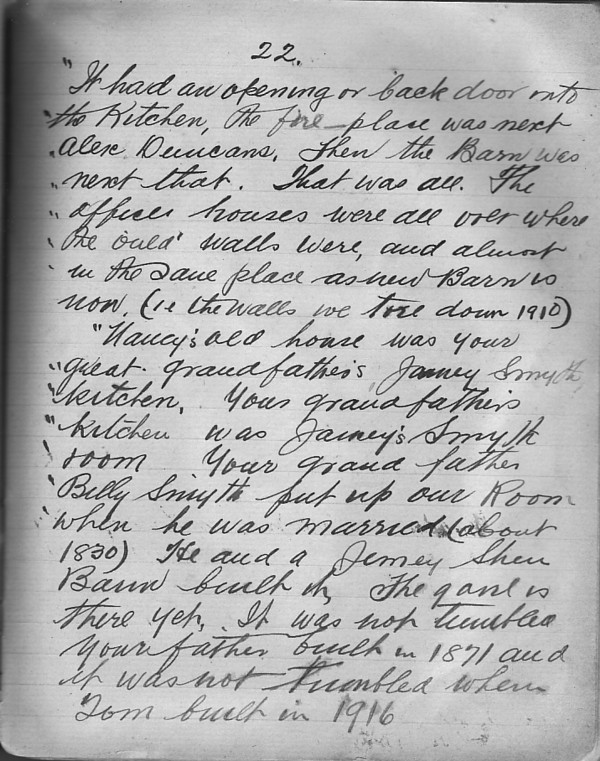 22.
"It had an opening or back door onto
"the Kitchen, the fire-place was next
"Alex Duncans. Then the Barn was
"next that. That was all. The
"offices houses were all over where
"the 'ould' walls were, and almost
"in the same place as new Barn is
"now. (ie the walls we tore down 1910)
"Nancy's old house was your
"great-grandfather's Jamey Smyth
"Kitchen. Your grandfather's
"Kitchen was Jamey's Smyth
"room Your grand father
"Billy Smyth put up our Room
"when he was married (about
1830) He and a Jemey
Barn built it, The gavel is
there yet. It was not tumbled
Your father built in 1871 and
it was not tumbled when
Tom built in 1916